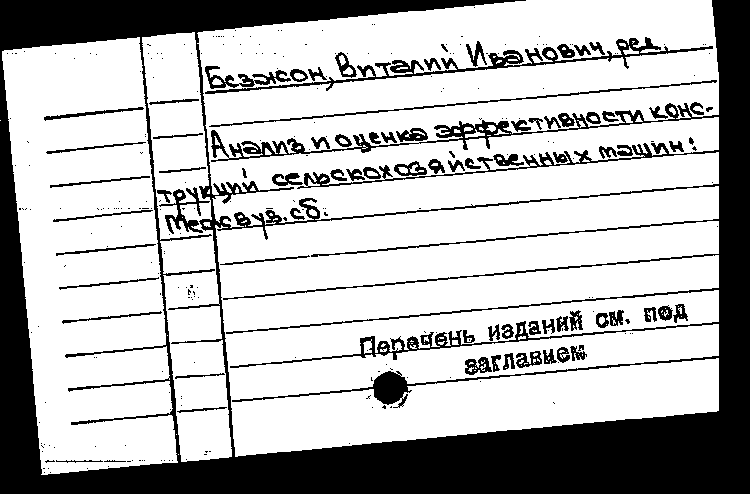 Безажон, Виталий Иванович, ред.
Анализ и оценка эффективности конс-
трукций сельскохозяйственных машин:
Межвуз. сб.
Перечень изданий см. под
заглавием